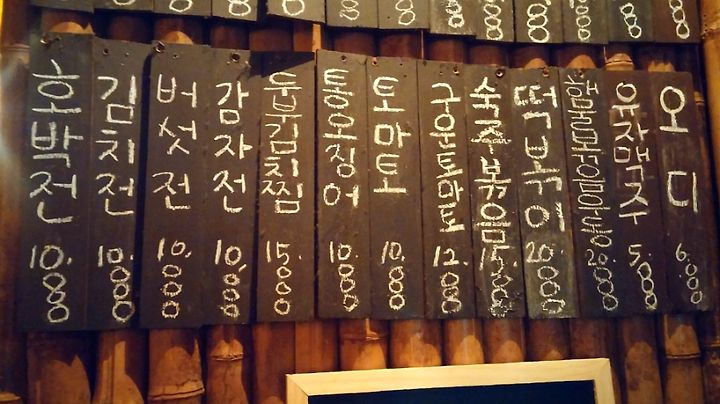 호박전 10.000
김치전 10.000
버섯전 10.000
감자전 10.000
두부김치찜 15.000
통오징어 10.000
토마토 10.000
구운토마토 12.000
숙주볶음 15.000
떡볶이 20.000
해물볶음우동 20.000
유자맥주 5.000
오디 6.000